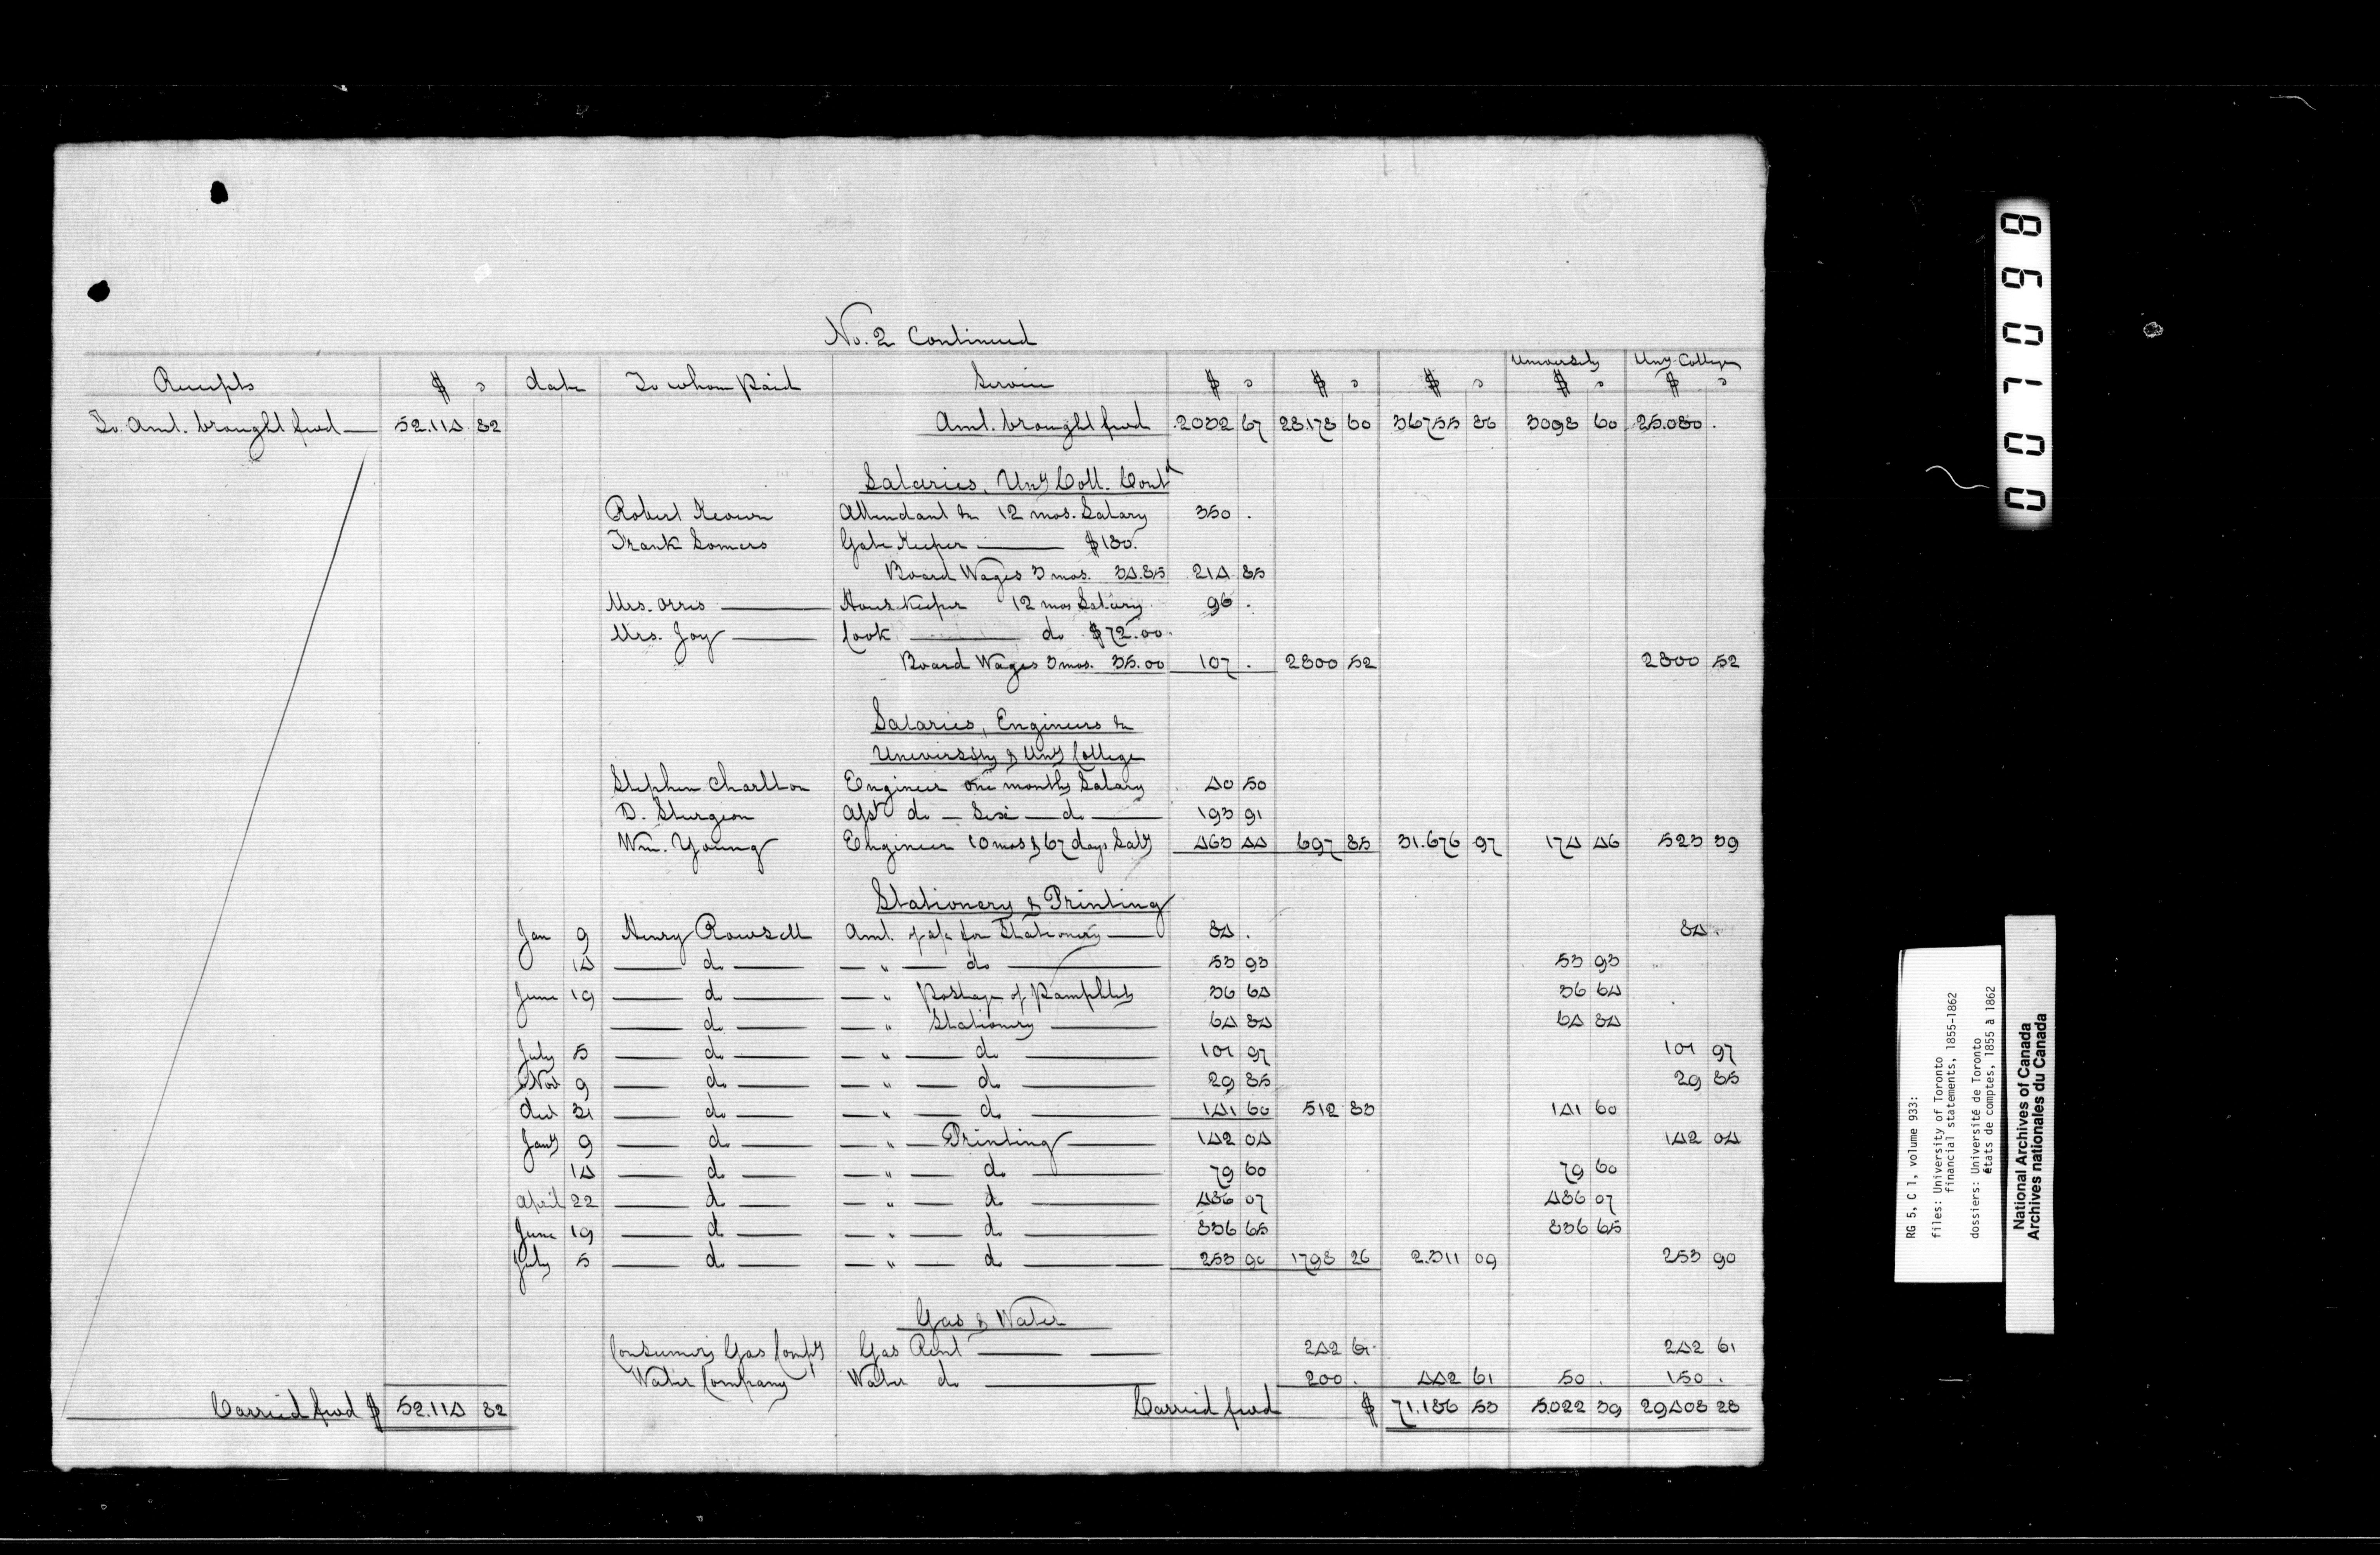 No. 2 Continued
University Uny College
Receipts $ c date To whom Paid Service $ c $ c $ c $ c $ c
To Amt. brought fwd 52.114 82 Amt. brought fwd 2032 67 28.178 60 36755 86 3098 60 25.080 .
Salaries, Uny Coll. Contd
Robert Keown Attendant &c 12 mos. Salary 350 .
Frank Somers Gate Keeper $180.
Board Wages 3 mos. 34.85 214 85
Mrs. Orris House keeper 12 mos Salary 96 .
Mrs. Joy Cook do $72.00
Board Wages 3 mos. 35.00 107 . 2800 52 2800 52
Salaries, Engineers &c
University & Uny College
Stephen Charlton Engineer one months Salary 40 50
D. Sturgeon Asst do – Six – do 193 91
Wm. Young Engineer 10 mos & 67 days Saly 463 44 697 85 31.676 97 174 46 523 39
Stationery & Printing
Jan 9 Henry Rowsell Amt. of a/c for Stationery 84 . 84 .
14 do " do 53 93 53 93
June 19 do " Postage of Pamphlets 36 64 36 64
do " Stationery 64 84 64 84
July 5 do " do 101 97 101 97
Nov 9 do " do 29 85 29 85
Decr 31 do " do 141 60 512 83 141 60
Jany 9 do " Printing 142 04 142 04
14 do " do 79 60 79 60
April 22 do " do 486 07 486 07
June 19 do " do 836 65 836 65
July 5 do " do 253 90 1798 26 2.311 09 253 90
Gas & Water
Consumers Gas Compy Gas Rent 242 61 242 61
Water Company Water do 200 . 442 61 50 . 150 .
Carried fwd $ 52.114 82 Carried fwd $ 71.186 53 5.022 39 29408 28
007098
RG 5, C 1, volume 933:
files: University of Toronto
financial statements, 1855-1862
dossiers: Université de Toronto
états de comptes, 1855 à 1862
National Archives of Canada
Archives nationales du Canada